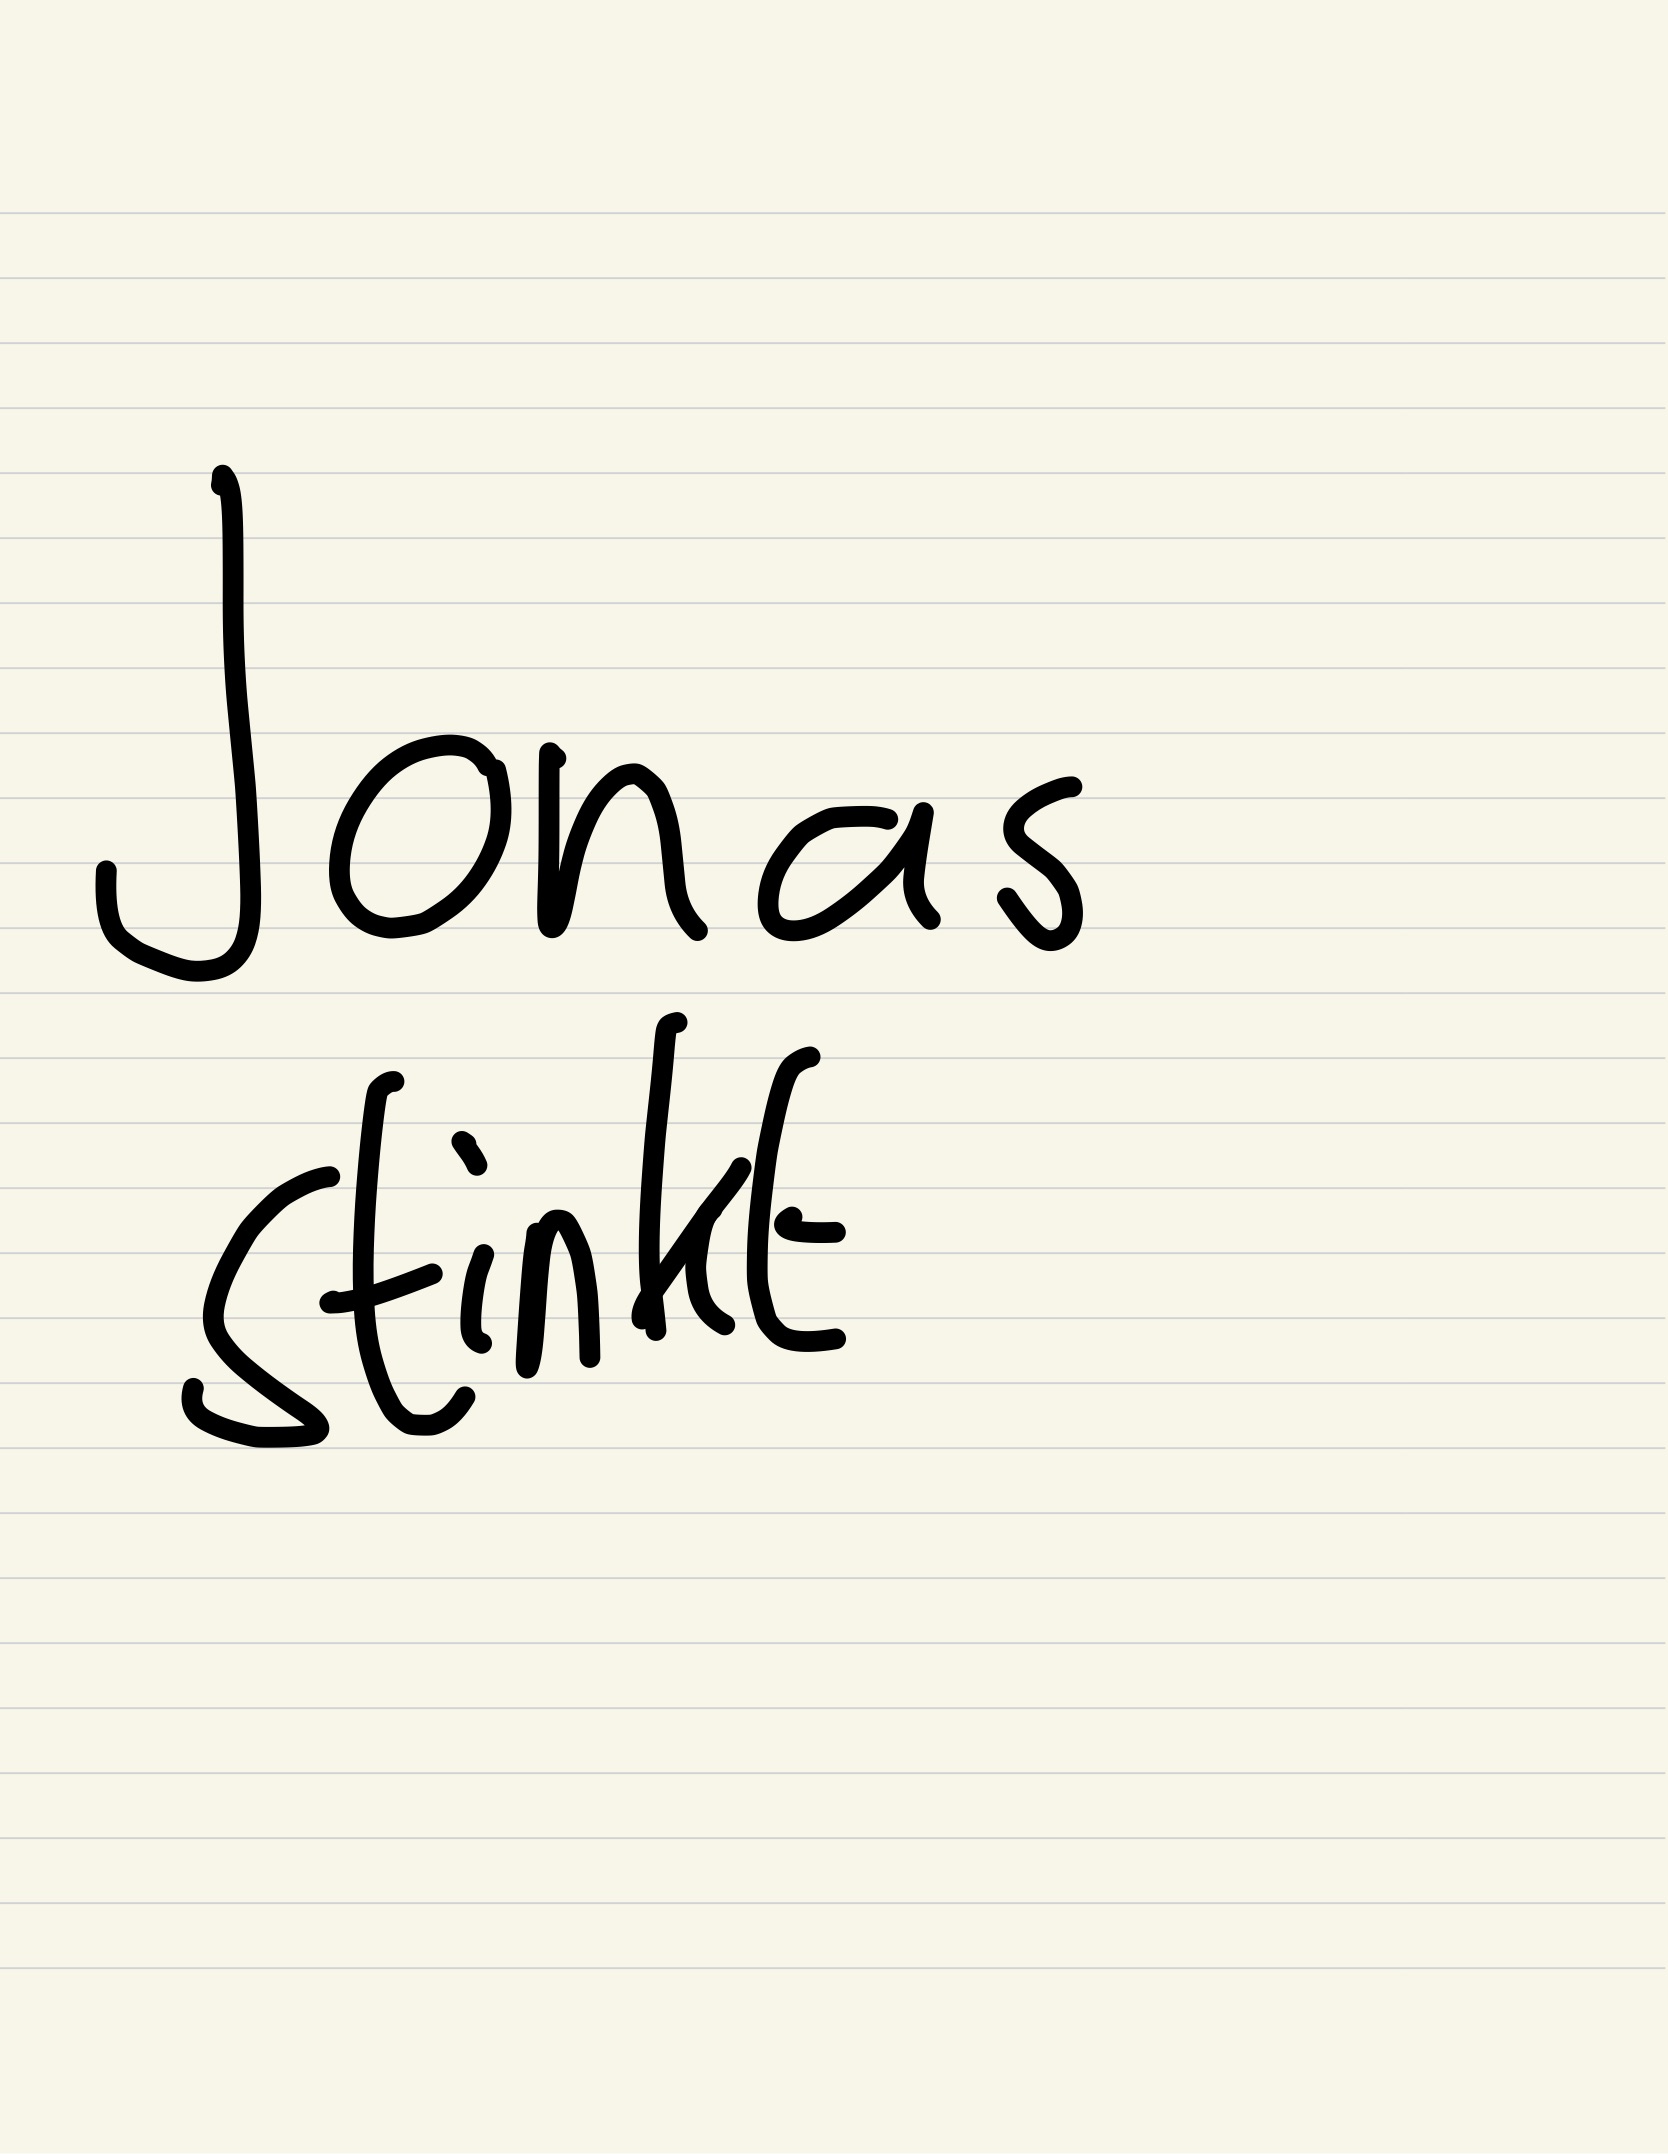 Jonas
stinkt